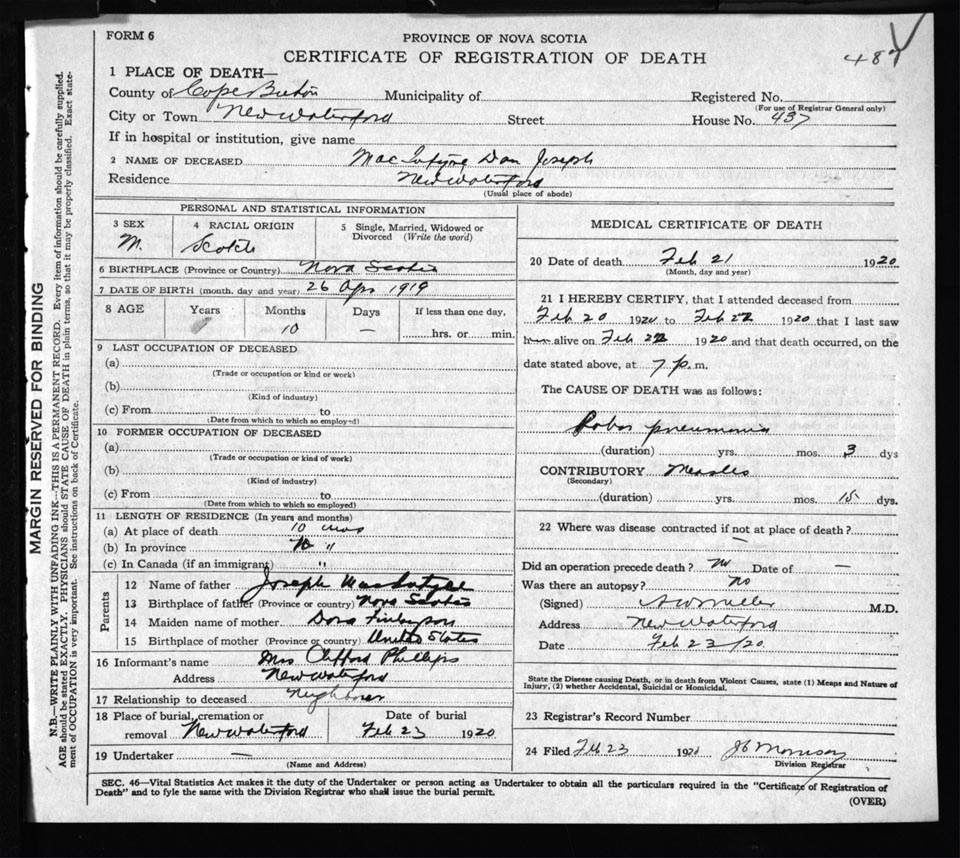 FORM 6
PROVINCE OF NOVA SCOTIA
CERTIFICATE OF REGISTRATION OF DEATH
487
MARGIN RESERVED FOR BINDING
N.B.—WRITE PLAINLY WITH UNFADING INK—THIS IS A PERMANENT RECORD. Every item of information should be carefully supplied.
AGE should be stated EXACTLY. PHYSICIANS should STATE CAUSE OF DEATH in plain terms, so that it may be properly classified. Exact state-
ment of OCCUPATION is very important. See instructions on back of Certificate.
1 PLACE OF DEATH—
County of Cape Breton Municipality of Registered No.
(For use of Registrar General only)
City or Town New Waterford Street House No. 437
If in hospital or institution, give name
2 NAME OF DECEASED Mac Intyre Dan Joseph
Residence New Waterford
(Usual place of abode)
PERSONAL AND STATISTICAL INFORMATION
3 SEX M.
4 RACIAL ORIGIN Scotch
5 Single, Married, Widowed or
Divorced (Write the word)
6 BIRTHPLACE (Province or Country) Nova Scotia
7 DATE OF BIRTH (month, day and year) 26 Apr 1919
8 AGE Years Months Days If less than one day,
10 — hrs. or min.
9 LAST OCCUPATION OF DECEASED
(a)
(Trade or occupation or kind or work)
(b)
(Kind of industry)
(c) From to
(Date from which to which so employed)
10 FORMER OCCUPATION OF DECEASED
(a)
(Trade or occupation or kind of work)
(b)
(Kind of industry)
(c) From to
(Date from which to which so employed)
11 LENGTH OF RESIDENCE (In years and months)
(a) At place of death 10 mos
(b) In province 10 "
(c) In Canada (if an immigrant) "
Parents
12 Name of father Joseph MacIntyre
13 Birthplace of father (Province or country) Nova Scotia
14 Maiden name of mother Dora Finlayson
15 Birthplace of mother (Province or country) United States
16 Informant's name Mrs Clifford Phillips
Address New Waterford
17 Relationship to deceased Neighbour
18 Place of burial, cremation or
removal New Waterford
Date of burial
Feb 23 1920
19 Undertaker —
(Name and Address)
MEDICAL CERTIFICATE OF DEATH
20 Date of death Feb 21 1920
(Month, day and year)
21 I HEREBY CERTIFY, that I attended deceased from
Feb 20 1920 to Feb 22 1920 that I last saw
him alive on Feb 22 1920 and that death occurred, on the
date stated above, at 7 p. m.
The CAUSE OF DEATH was as follows:
Lobar pneumonia
(duration) yrs. mos. 3 dys
CONTRIBUTORY Measles
(Secondary)
(duration) yrs. mos. 15 dys.
22 Where was disease contracted if not at place of death?
—
Did an operation precede death? no Date of —
Was there an autopsy? no
(Signed) A W Miller M.D.
Address New Waterford
Date Feb 23/20
State the Disease causing Death, or in death from Violent Causes, state (1) Means and Nature of
Injury, (2) whether Accidental, Suicidal or Homicidal.
23 Registrar's Record Number
24 Filed Feb 23 1920 Morrison
Division Registrar
SEC. 46—Vital Statistics Act makes it the duty of the Undertaker or person acting as Undertaker to obtain all the particulars required in the "Certificate of Registration of
Death" and to fyle the same with the Division Registrar who shall issue the burial permit.
(OVER)